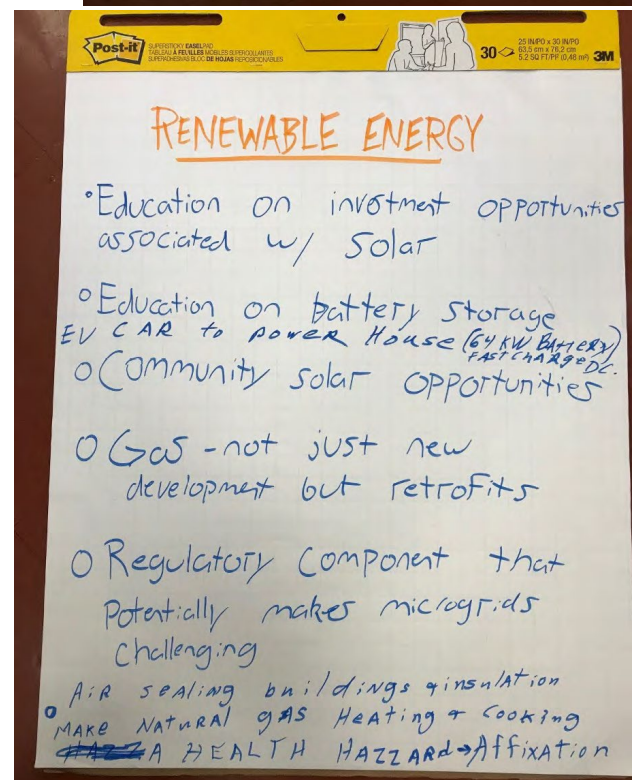 Post-it
SUPERSTICKY EASEL PAD
TABLEAU À FEUILLES MOBILES SUPERCOLLANTES
SUPERADHESIVAS BLOC DE HOJAS REPOSICIONABLES
30
25 IN/PO x 30 IN/PO
63,5 cm x 76,2 cm
5.2 SQ FT/PI² (0,48 m²)
3M
RENEWABLE ENERGY
° Education on investment opportunities
associated w/ Solar
° Education on battery storage
EV CAR to power House (64 KW BATTERY)
FAST CHARGE DC.
O Community solar opportunities
O Gas - not just new
development but retrofits
O Regulatory component that
Potentially makes microgrids
Challenging
AIR sealing buildings & insulation
O MAKE NATURAL GAS HEATING & COOKING
A HEALTH HAZZARD → Affixation